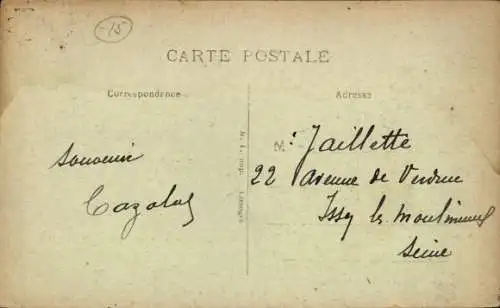 -15
CARTE POSTALE
Correspondance
Adresse
Souvenir
Cazalas
M. Jaillette
22 Avenue de Verdun
Issy les Moulineaux
Seine